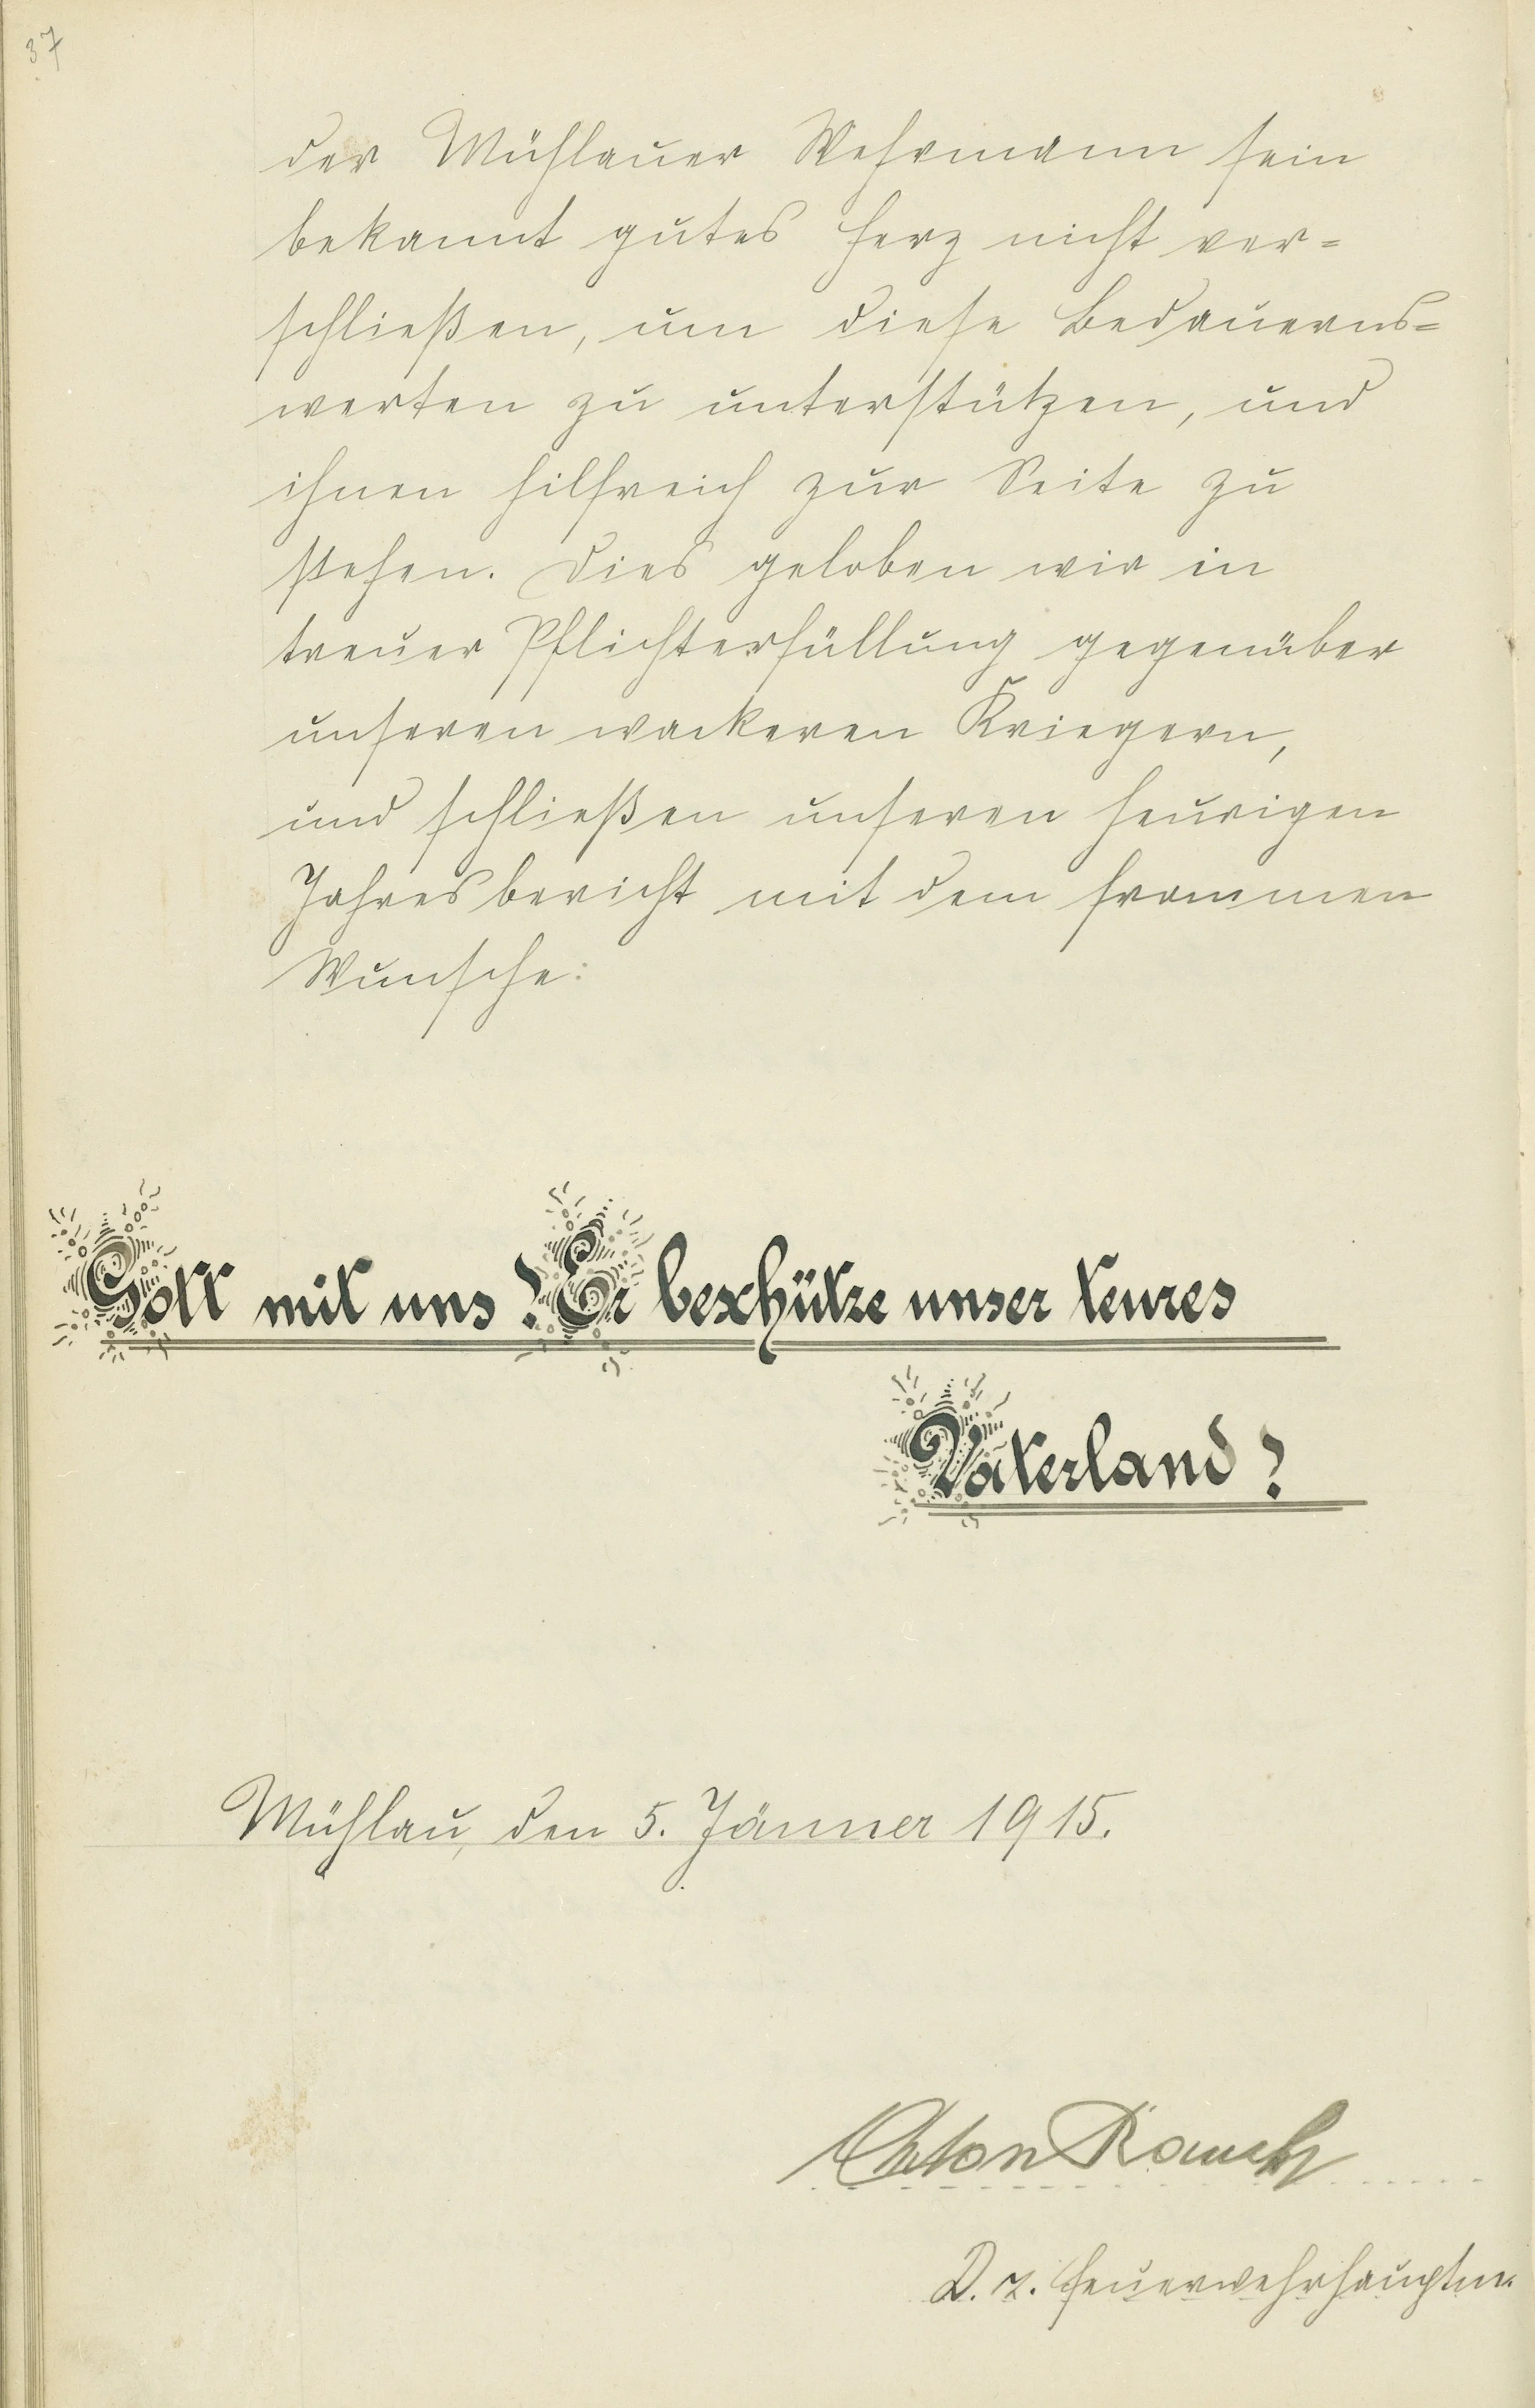 37
der Mühlauer Wehrmann sein
bekannt gutes Herz nicht ver=
schließen, um diese Bedauerns=
werten zu unterstützen, und
ihnen hilfreich zur Seite zu
stehen. Dies geloben wir in
treuer Pflichterfüllung gegenüber
unseren wackeren Kriegern,
und schließen unseren heurigen
Jahresbericht mit dem frommen
Wunsche:
Gott mit uns! Er beschütze unser teures
Vaterland!
Mühlau, den 5. Jänner 1915.
Anton Rauch
D. z. Feuerwehrhauptm.